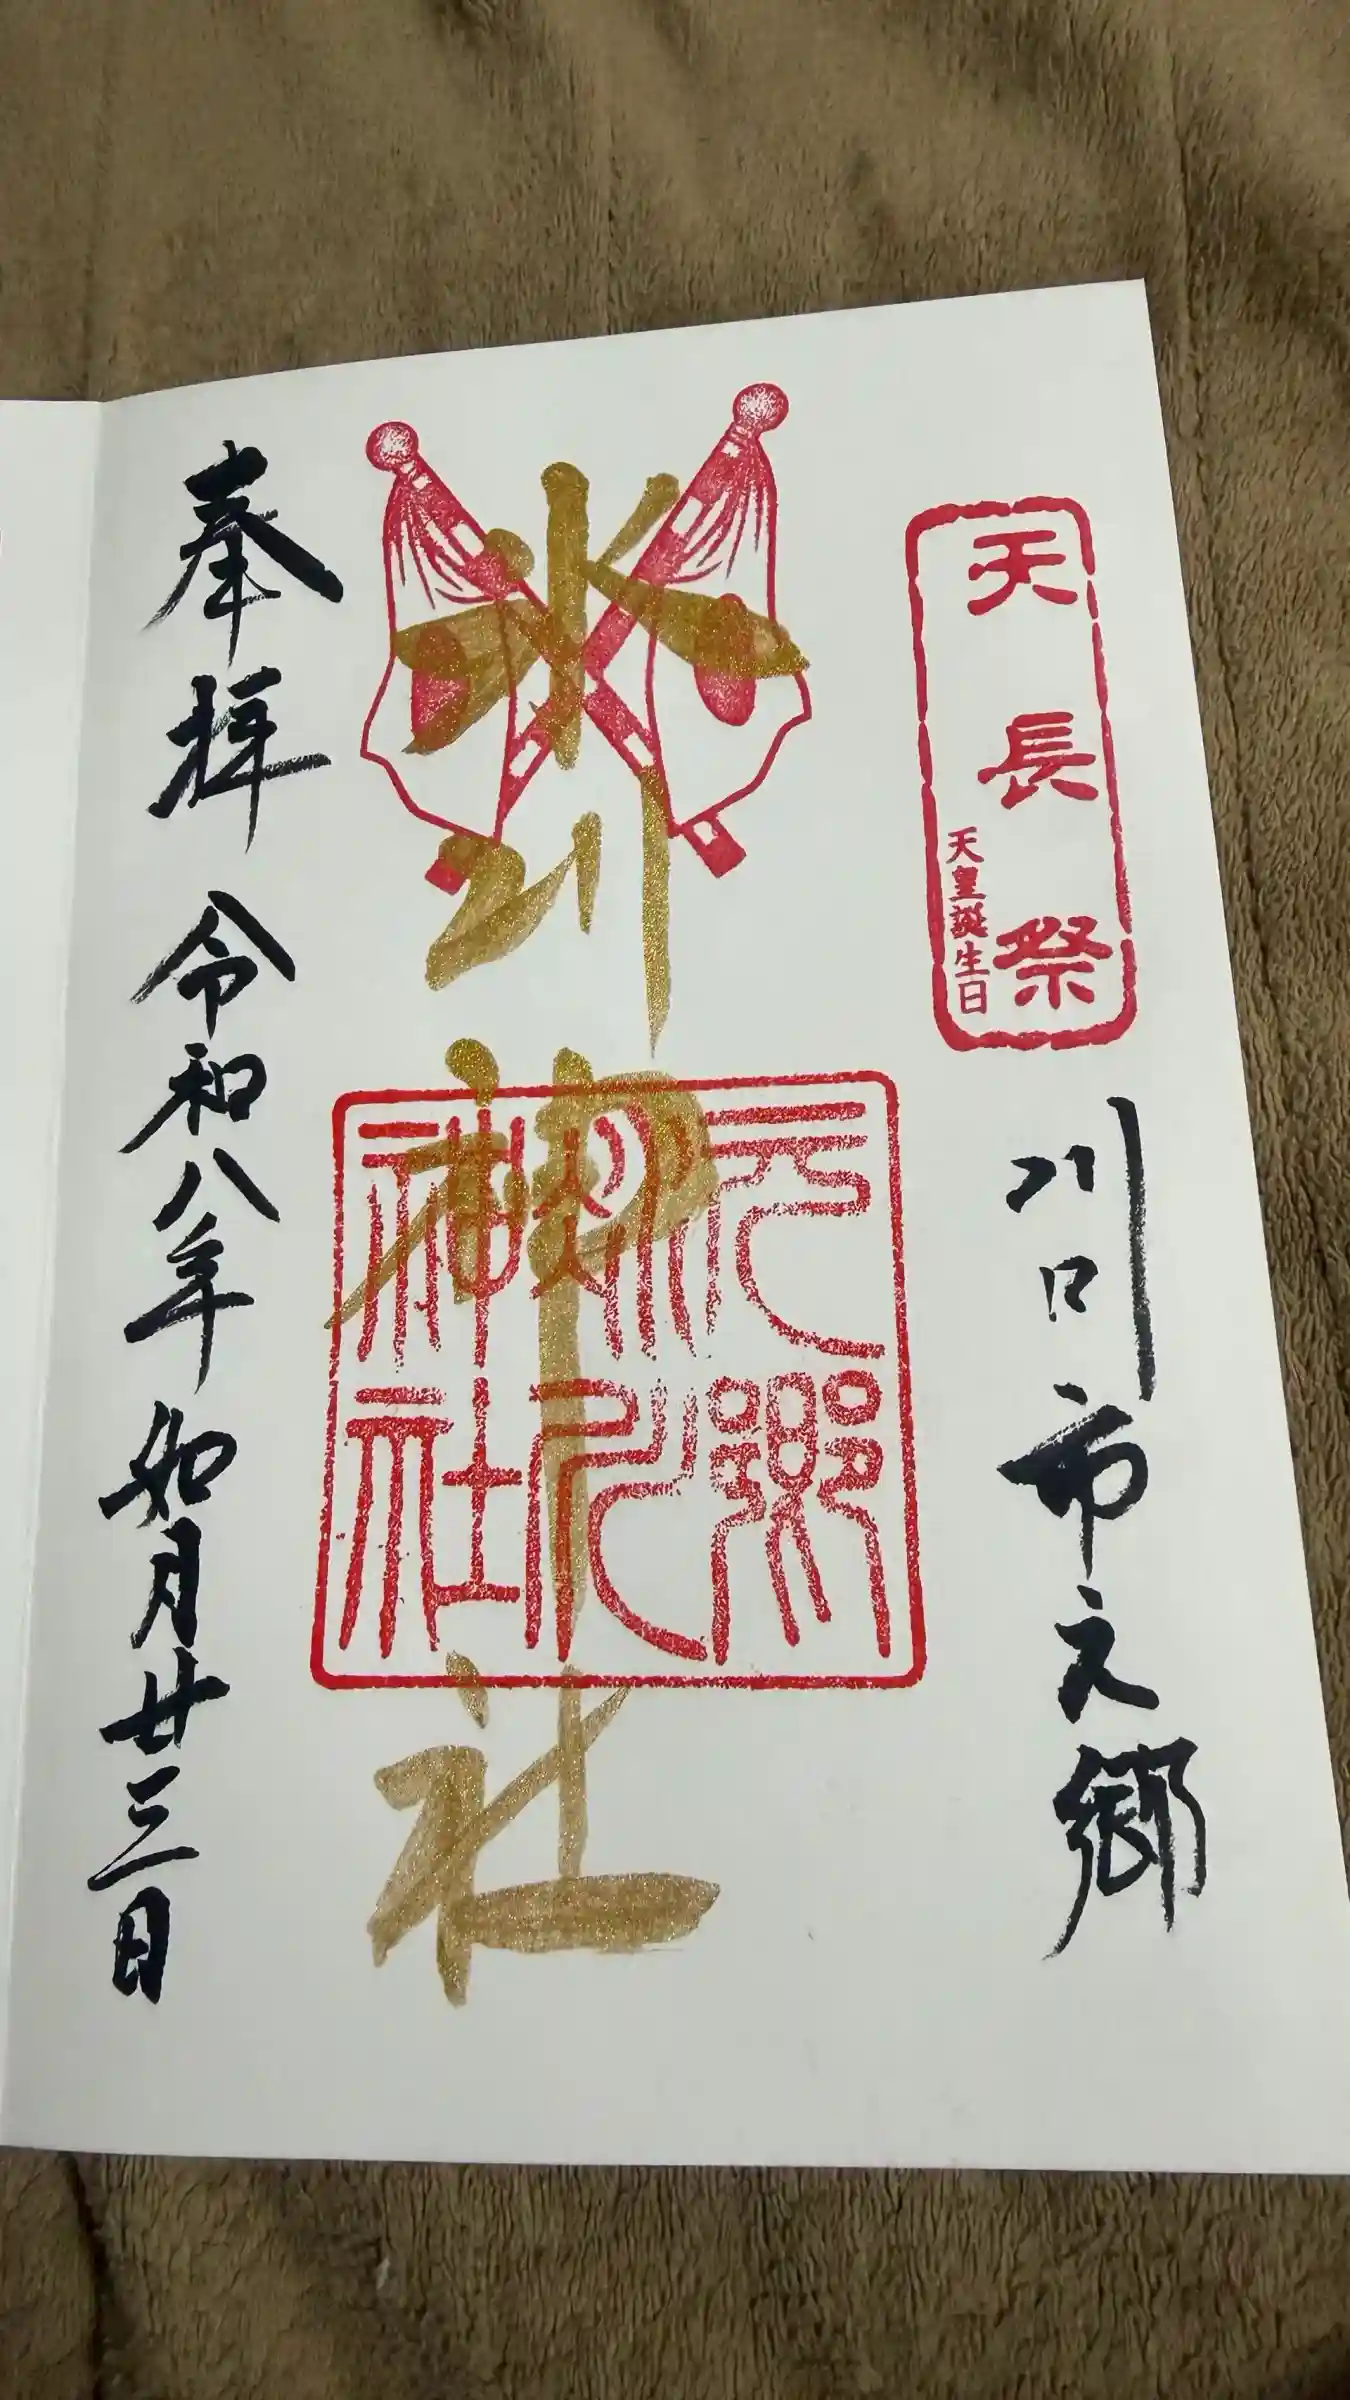 天長祭
天皇誕生日
川口市元郷
氷川神社
元郷
氷川
神社
奉拝 令和八年如月廿三日